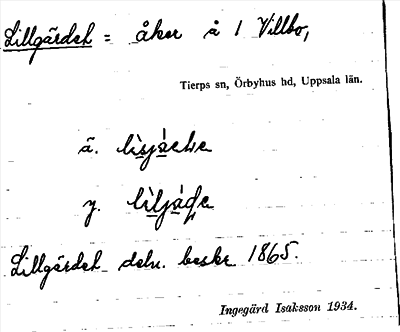 Lillgärdet = åker å 1 Villbo,
Tierps sn, Örbyhus hd, Uppsala län.
ä.
y.
Lillgärdet deln. beskr 1865.
Ingegärd Isaksson 1934.